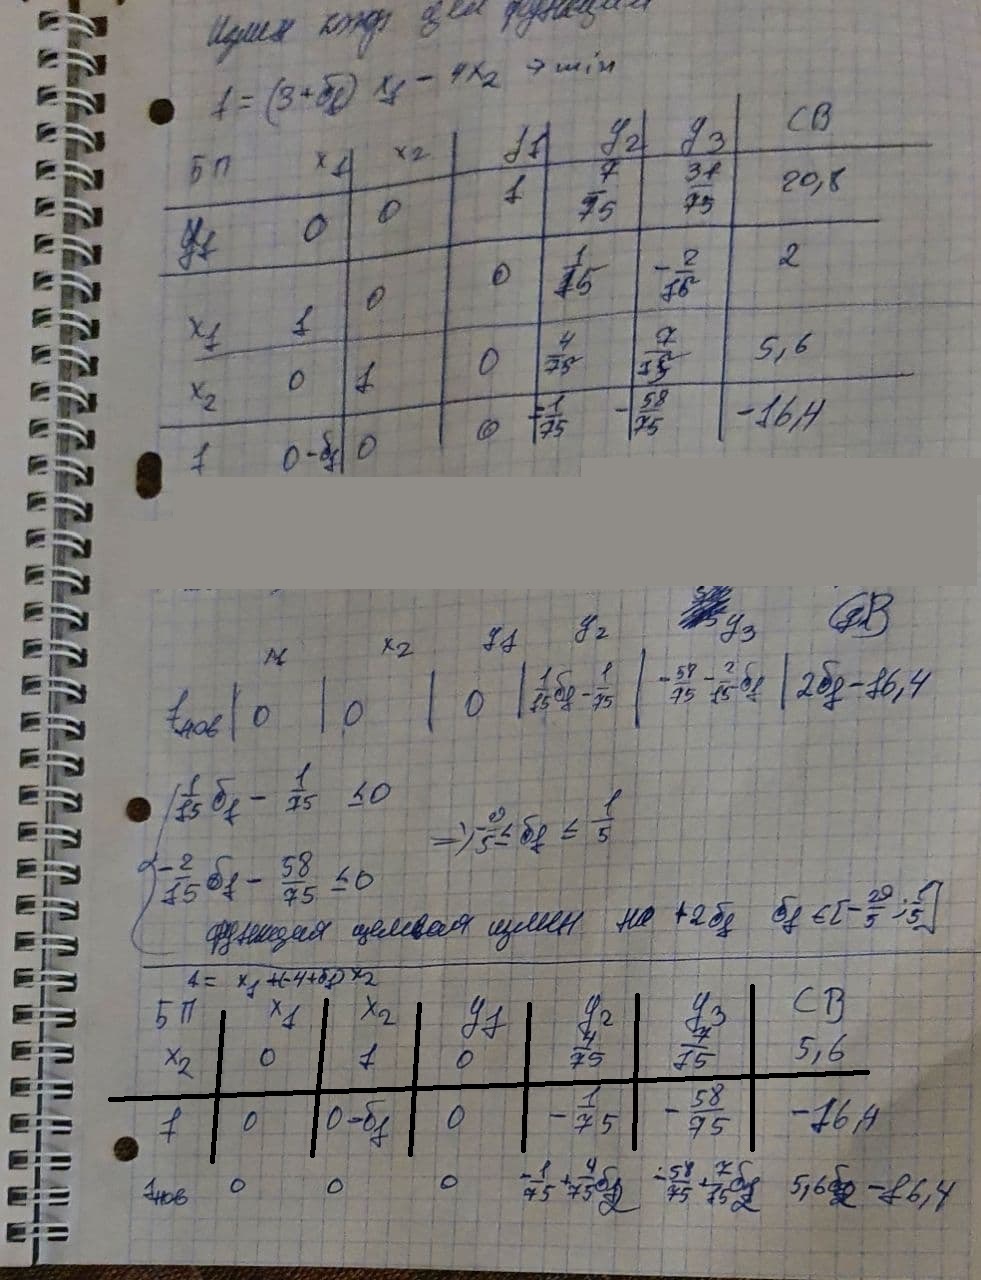 Измен коэф цел функции
f = (3+δ1) x1 - 4x2 → min
БП x1 x2 y1 y2 y3 СВ
y1 0 0 1 7/75 31/75 20,8
x1 1 0 0 1/15 -2/15 2
x2 0 1 0 4/75 7/75 5,6
f 0-δ1 0 0 -1/75 -58/75 -16,4
x1 x2 y1 y2 y3 СВ
fнов 0 0 0 1/15 δ1 - 1/75 -58/75 - 2/15 δ1 2δ1 - 16,4
1/15 δ1 - 1/75 ≤0
=> -29/5 ≤ δ1 ≤ 1/5
-2/15 δ1 - 58/75 ≤0
функция целевая измен на +2δ1 δ1 ∈[-29/5 ; 1/5]
f = x1 +(-4+δ1) x2
БП x1 x2 y1 y2 y3 СВ
x2 0 1 0 4/75 7/75 5,6
f 0 0-δ1 0 -1/75 -58/75 -16,4
fнов 0 0 0 -1/75 + 4/75 δ2 -58/75 + 7/75 δ2 5,6δ2 - 16,4